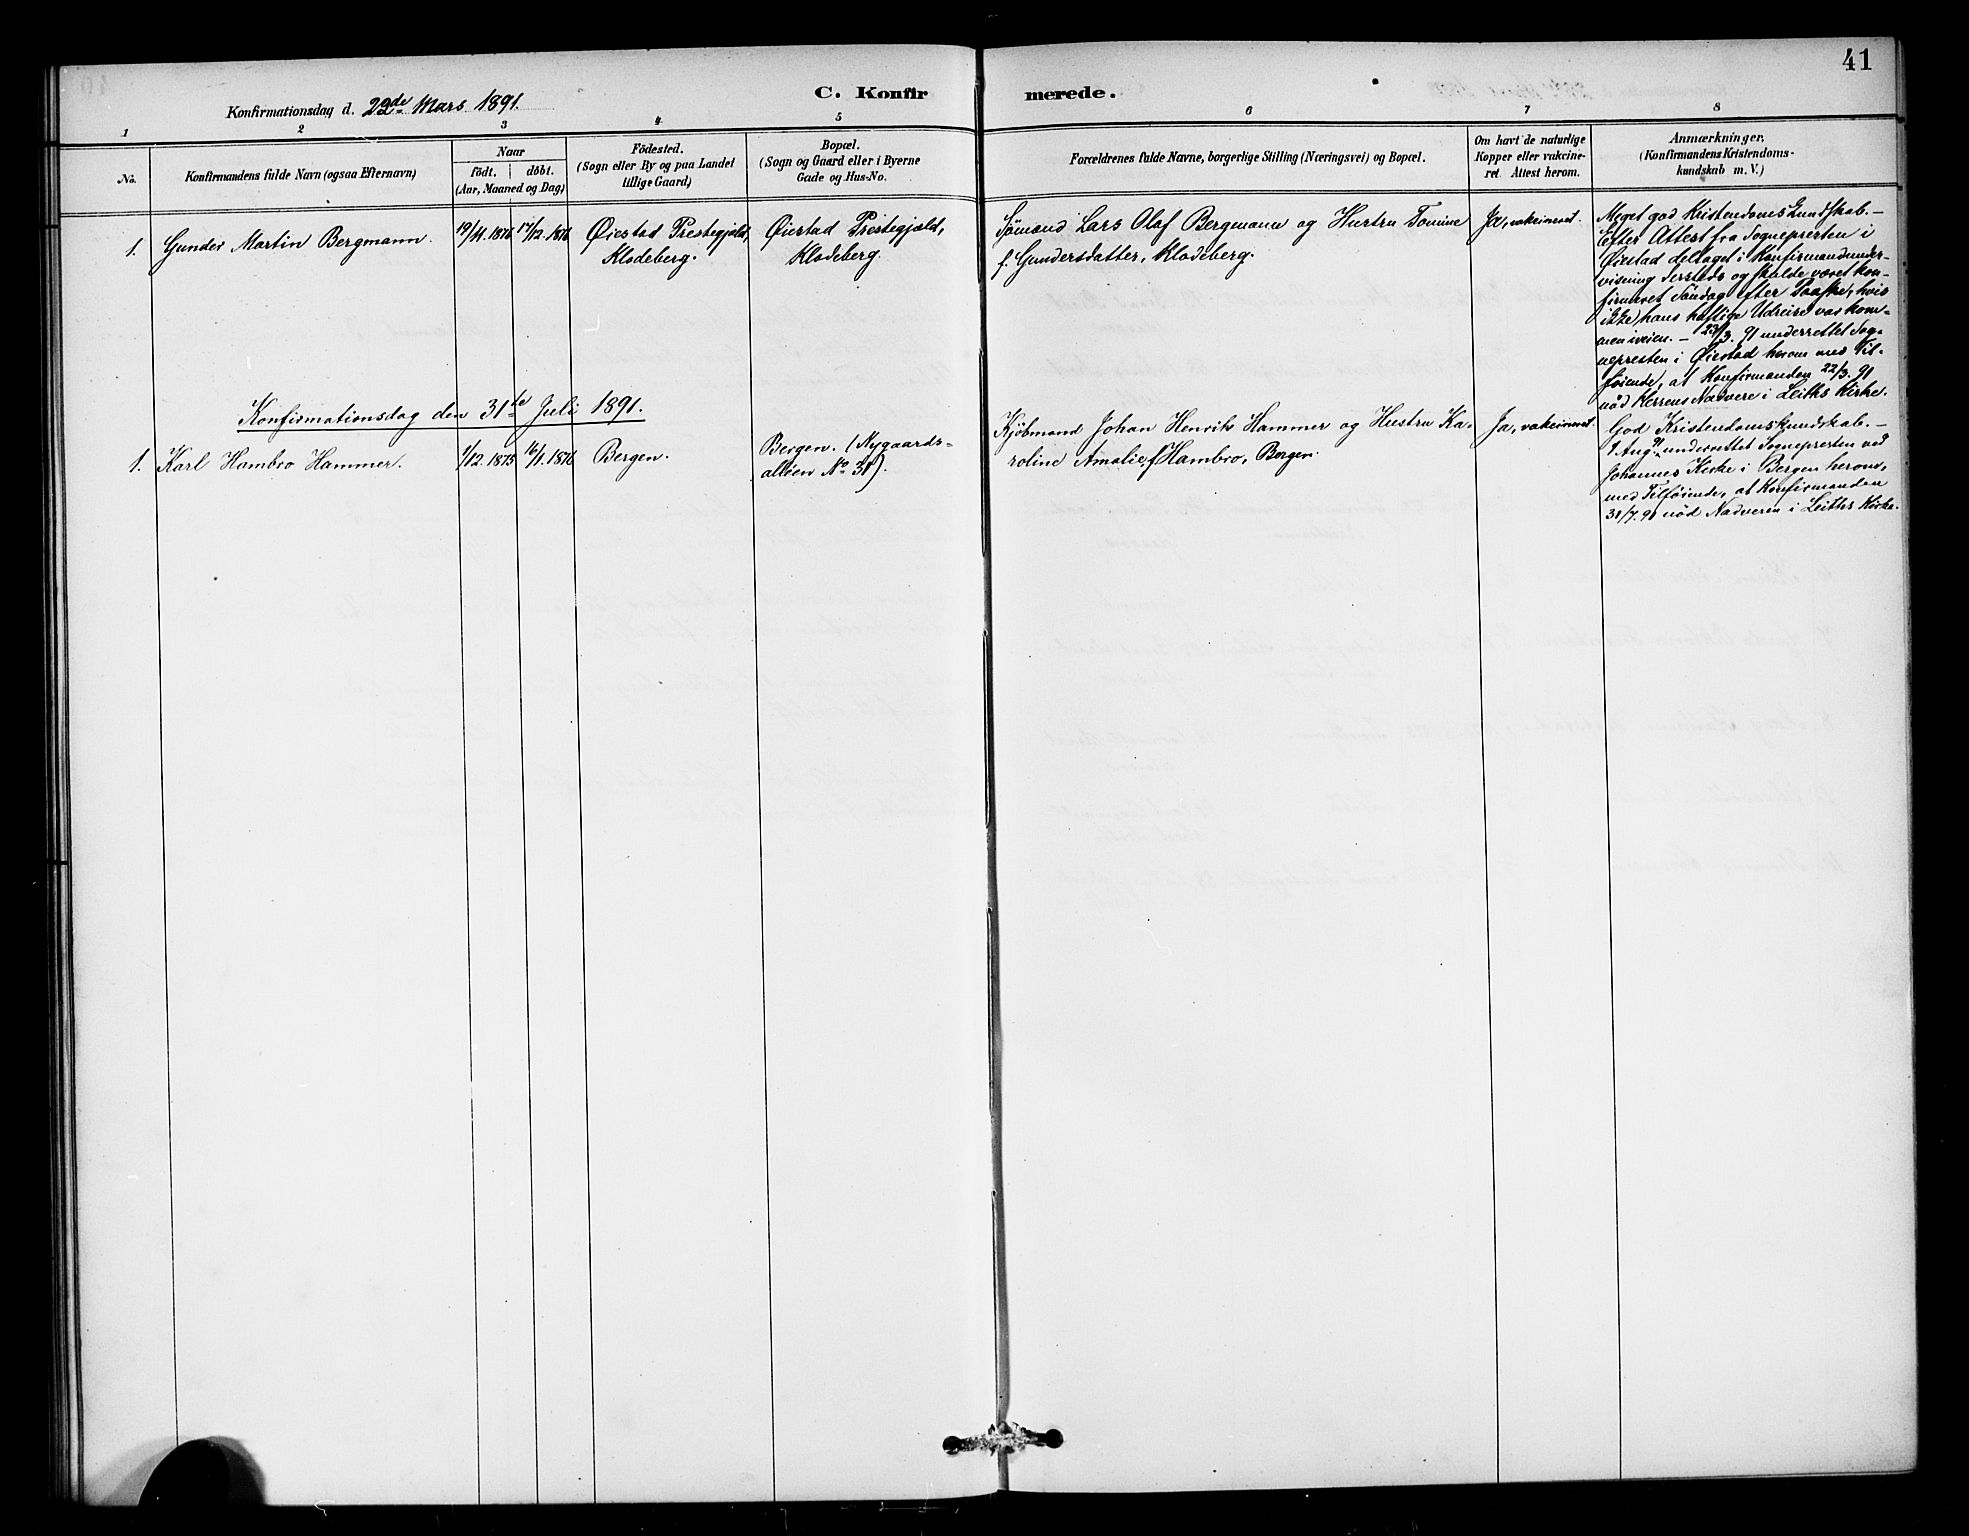 41
C. Konfirmerede.
Konfirmationsdag d. 22de Mars 1891.
1 2 3 4 5 6 7 8
No.
Konfirmandens fulde Navn (ogsaa Efternavn)
Naar
födt. döbt.
(Aar, Maaned og Dag)
Födested.
(Sogn eller By og paa Landet
tillige Gaard)
Bopæl.
(Sogn og Gaard eller i Byerne
Gade og Hus-No.
Forældrenes fulde Navne, borgerlige Stilling (Næringsvei) og Bopæl.
Om havt de naturlige
Kopper eller vakcine-
ret. Attest herom.
Anmærkninger.
(Konfirmandens Kristendoms-
kundskab m. V.)
1. Gunder Martin Bergmann.
19/11. 1876 17/12. 1876
Øiestad Prestegjæld,
Klodeberg.
Øiestad Præstegjæld,
Klodeberg.
Sømand Lars Olaf Bergmann og Hustru Tomine
f. Gundersdatter, Klodeberg.
Ja, vakcineret.
Meget god Kristendomskundskab. -
Efter Attest fra Sognepresten i
Øiestad deltaget i Konfirmandunder-
visning dersteds og skulde været kon-
firmeret Söndag efter Paaske, hvis
ikke hans hastige Udreise var kom-
men iveien. - 23/3. 91 underrettet Sog-
nepresten i Øiestad herom med Til-
föiende, at Konfirmanden 22/3. 91
nöd Herrens Nadvere i Leiths Kirke.
Konfirmationsdag den 31te Juli 1891.
1. Karl Hambro Hammer.
1/12. 1875 16/1. 1876
Bergen.
Bergen. (Nygaards-
alléen No 31).
Kjöbmand Johan Henrik Hammer og Hustru Ka-
roline Amalie, f Hambro, Bergen.
Ja, vakcineret.
God Kristendomskundskab. -
1 Aug. 91 underrettet Sognepresten ved
Johannes Kirke i Bergen herom,
med Tilföiende, at Konfirmanden
31/7. 91 nöd Nadveren i Leiths Kirke.